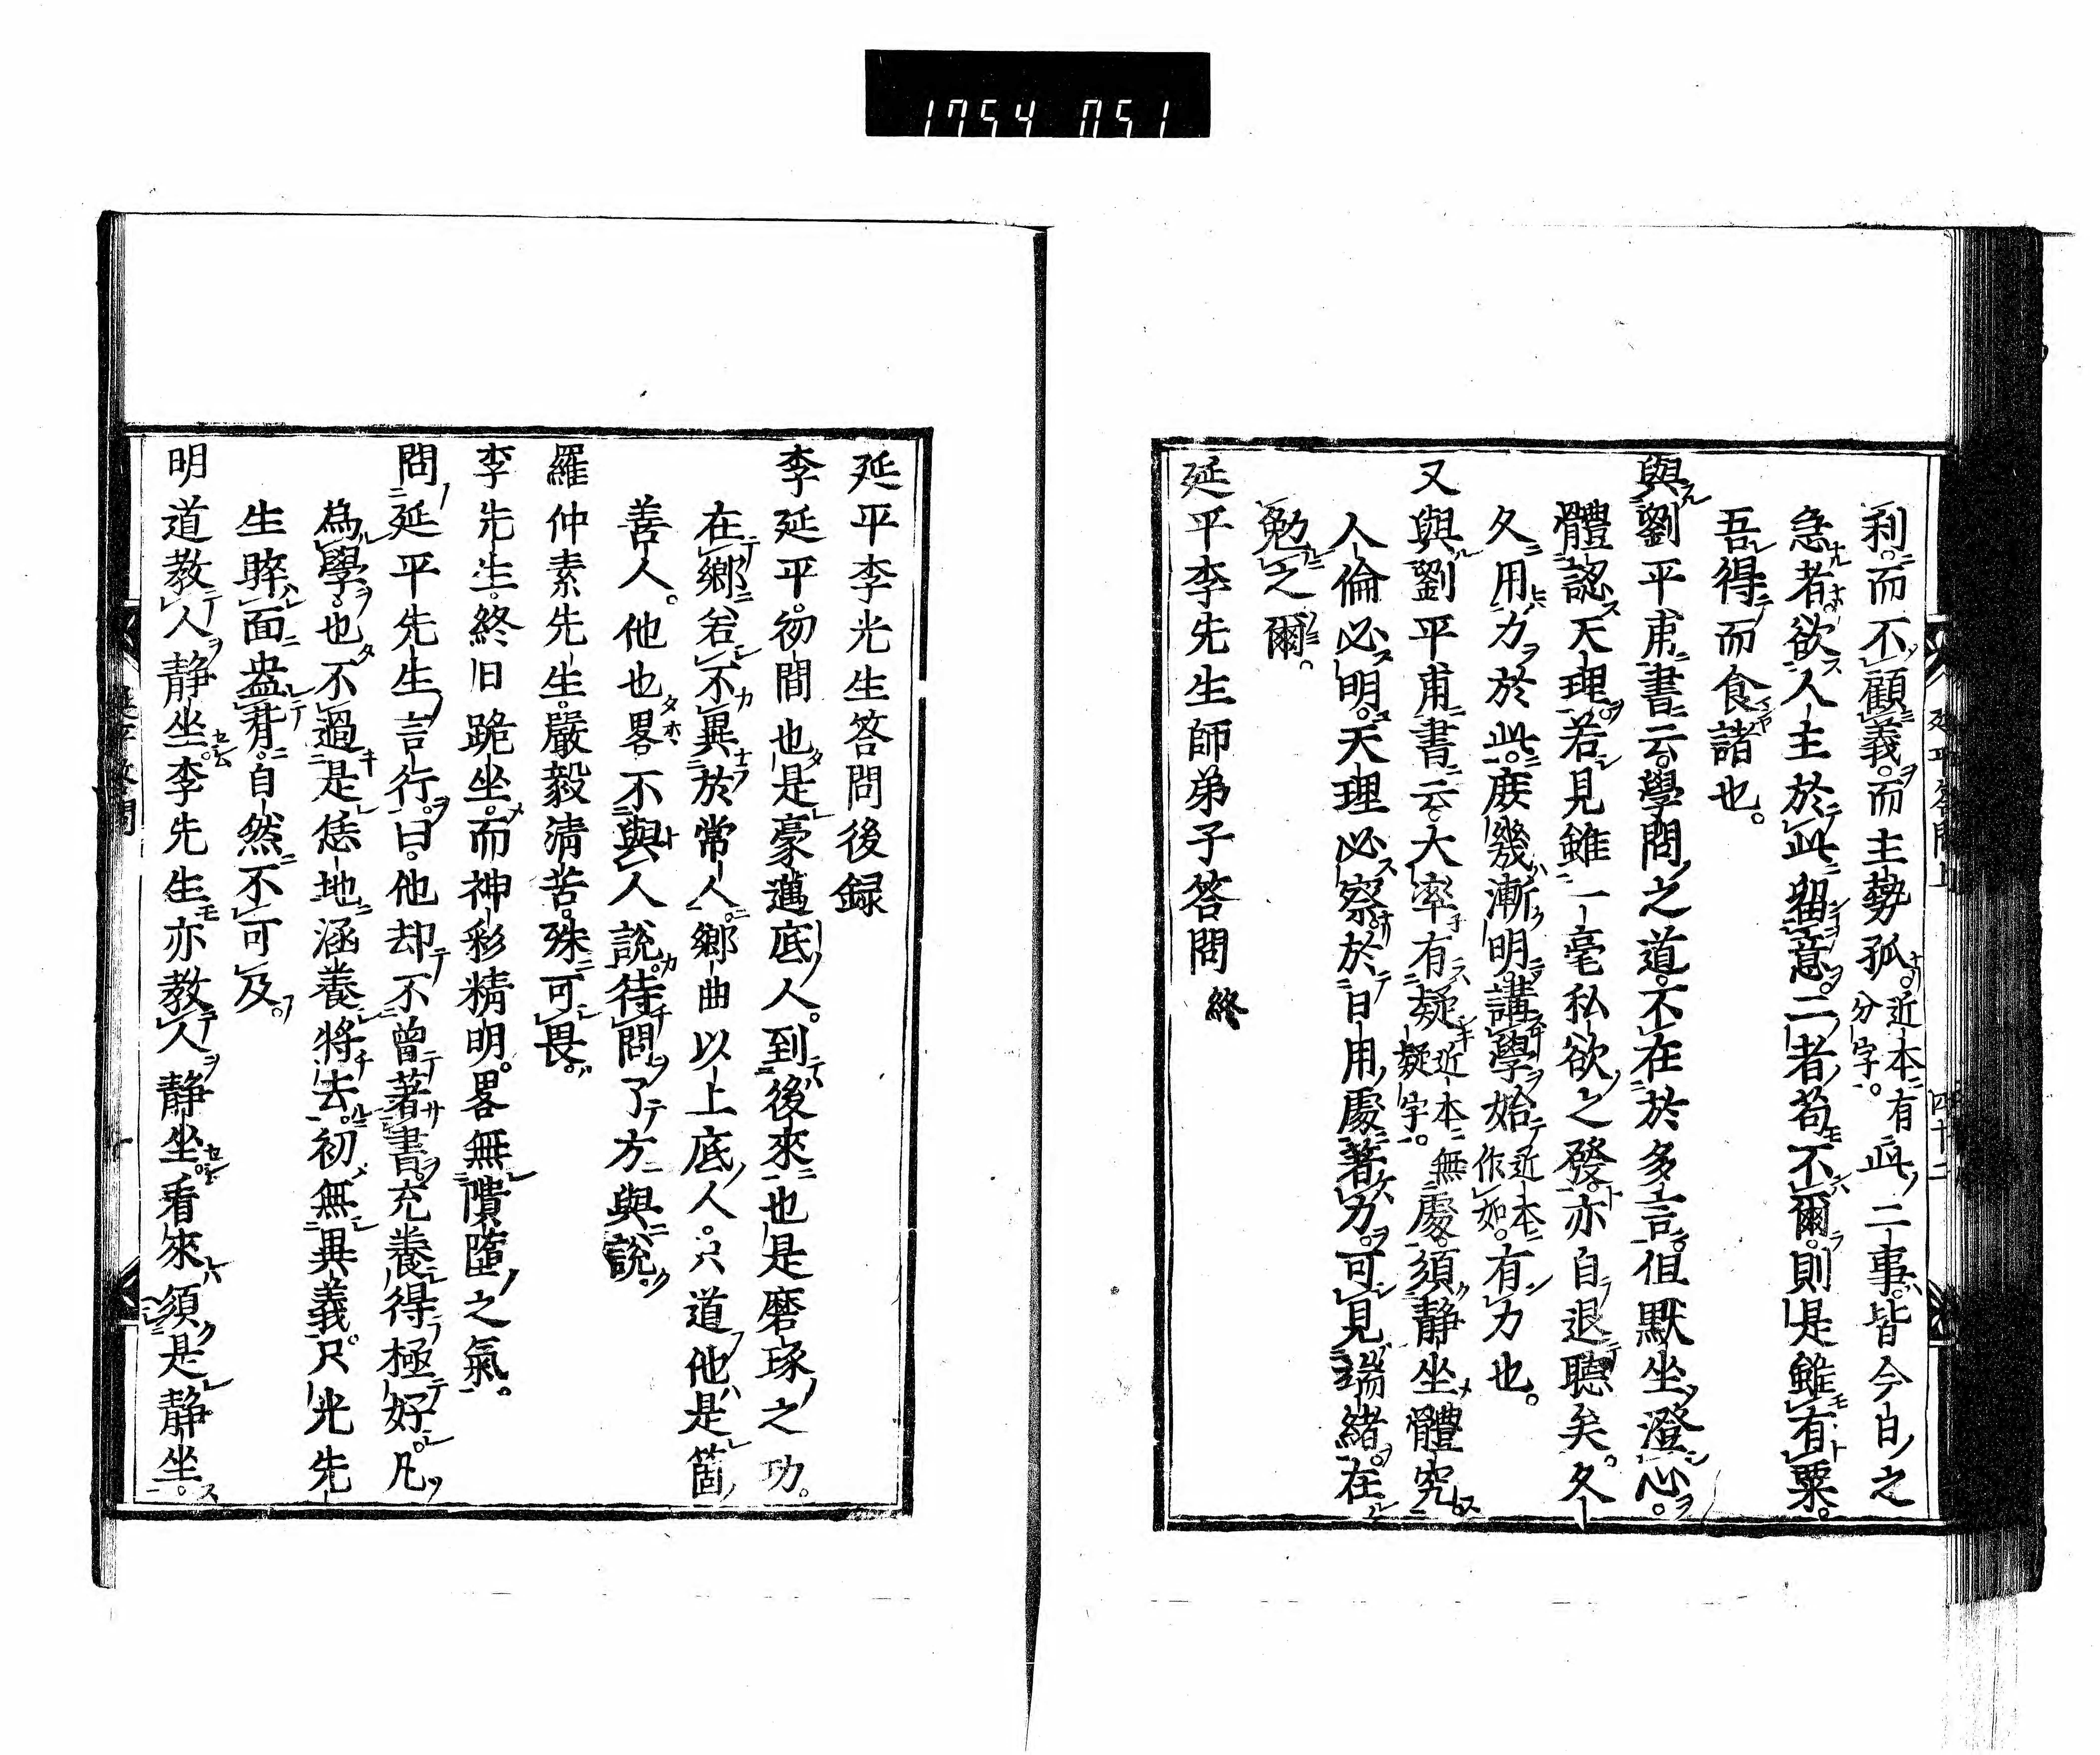 1754 051
利而不顧義而主勢孤近本有分字此二事皆今日之
急者欲人主於此留意二者苟不爾則是雖有粟
吾得而食諸也。
與劉平甫書云學問之道不在於多言但默坐澄心。
體認天理若見雖一毫私欲之發亦自退聽矣。久
久用力於此庶幾漸明講學始近本作如有力也。
又與劉平甫書云大率有疑近本無疑字處須靜坐體究
人倫必明天理必察於日用處著力可見端緒在
勉之爾。
延平李先生師弟子答問 終
延平答問上 四十二
延平李先生答問後録
李延平初間也是豪邁底人。到後來也是磨琢之功。
在鄉若不異於常人鄉曲以上底人。只道他是箇
善人。他也畧不與人說待問了方與說。
羅仲素先生嚴毅清苦殊可畏。
李先生終日跪坐而神彩精明。畧無隤墮之氣。
問延平先生言行曰他却不曾著書充養得極好凡
為學也不過是恁地涵養將去初無異義只先先
生睟面盎背自然不可及。
明道教人靜坐李先生亦教人靜坐看來須是靜坐。